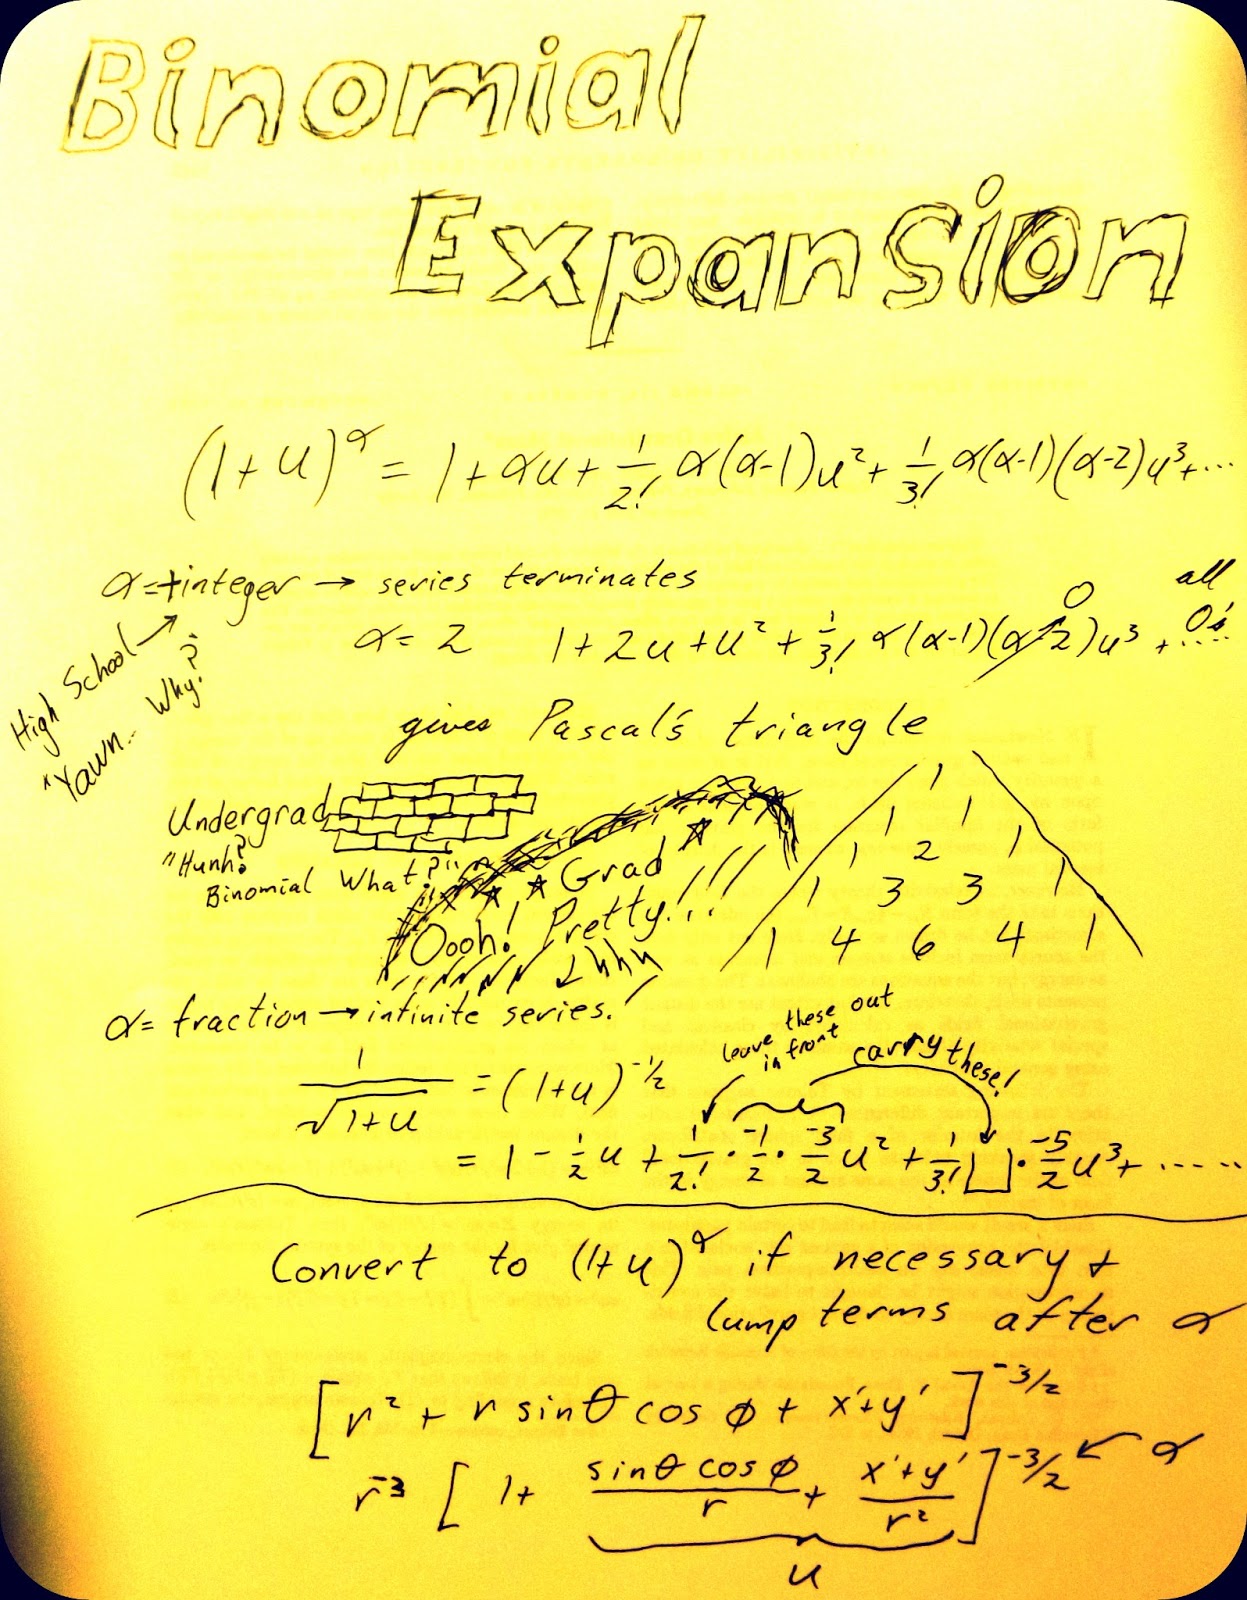 Binomial
Expansion
(1+u)^α = 1 + αu + 1/2! α(α-1)u² + 1/3! α(α-1)(α-2)u³ + ...
α=+integer → series terminates
High School →
"Yawn... Why?
α = 2 1 + 2u + u² + 1/3! α(α-1)(α-2)u³ + .....
0
all 0's
gives Pascal's triangle
1
1 1
1 2 1
1 3 3 1
1 4 6 4 1
Undergrad
"Hunh?
Binomial What?"
Grad
Oooh! Pretty!!!
α = fraction → infinite series!
leave these out
in front
carry these!
1/√(1+u) = (1+u)^-1/2
= 1 - 1/2 u + 1/2! · -1/2 · -3/2 u² + 1/3! [ ] · -5/2 u³ + .....
Convert to (1+u)^α if necessary +
lump terms after α
[r² + r sinθ cos φ + x'+y']^-3/2
r^-3 [1 + sinθ cos φ/r + x'+y'/r²]^-3/2 ← α
u